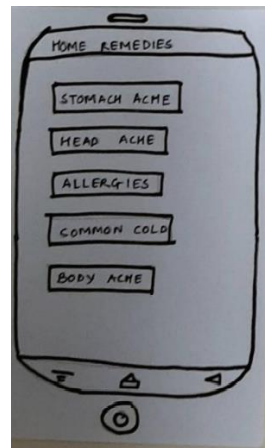 HOME REMEDIES
STOMACH ACHE
HEAD ACHE
ALLERGIES
COMMON COLD
BODY ACHE